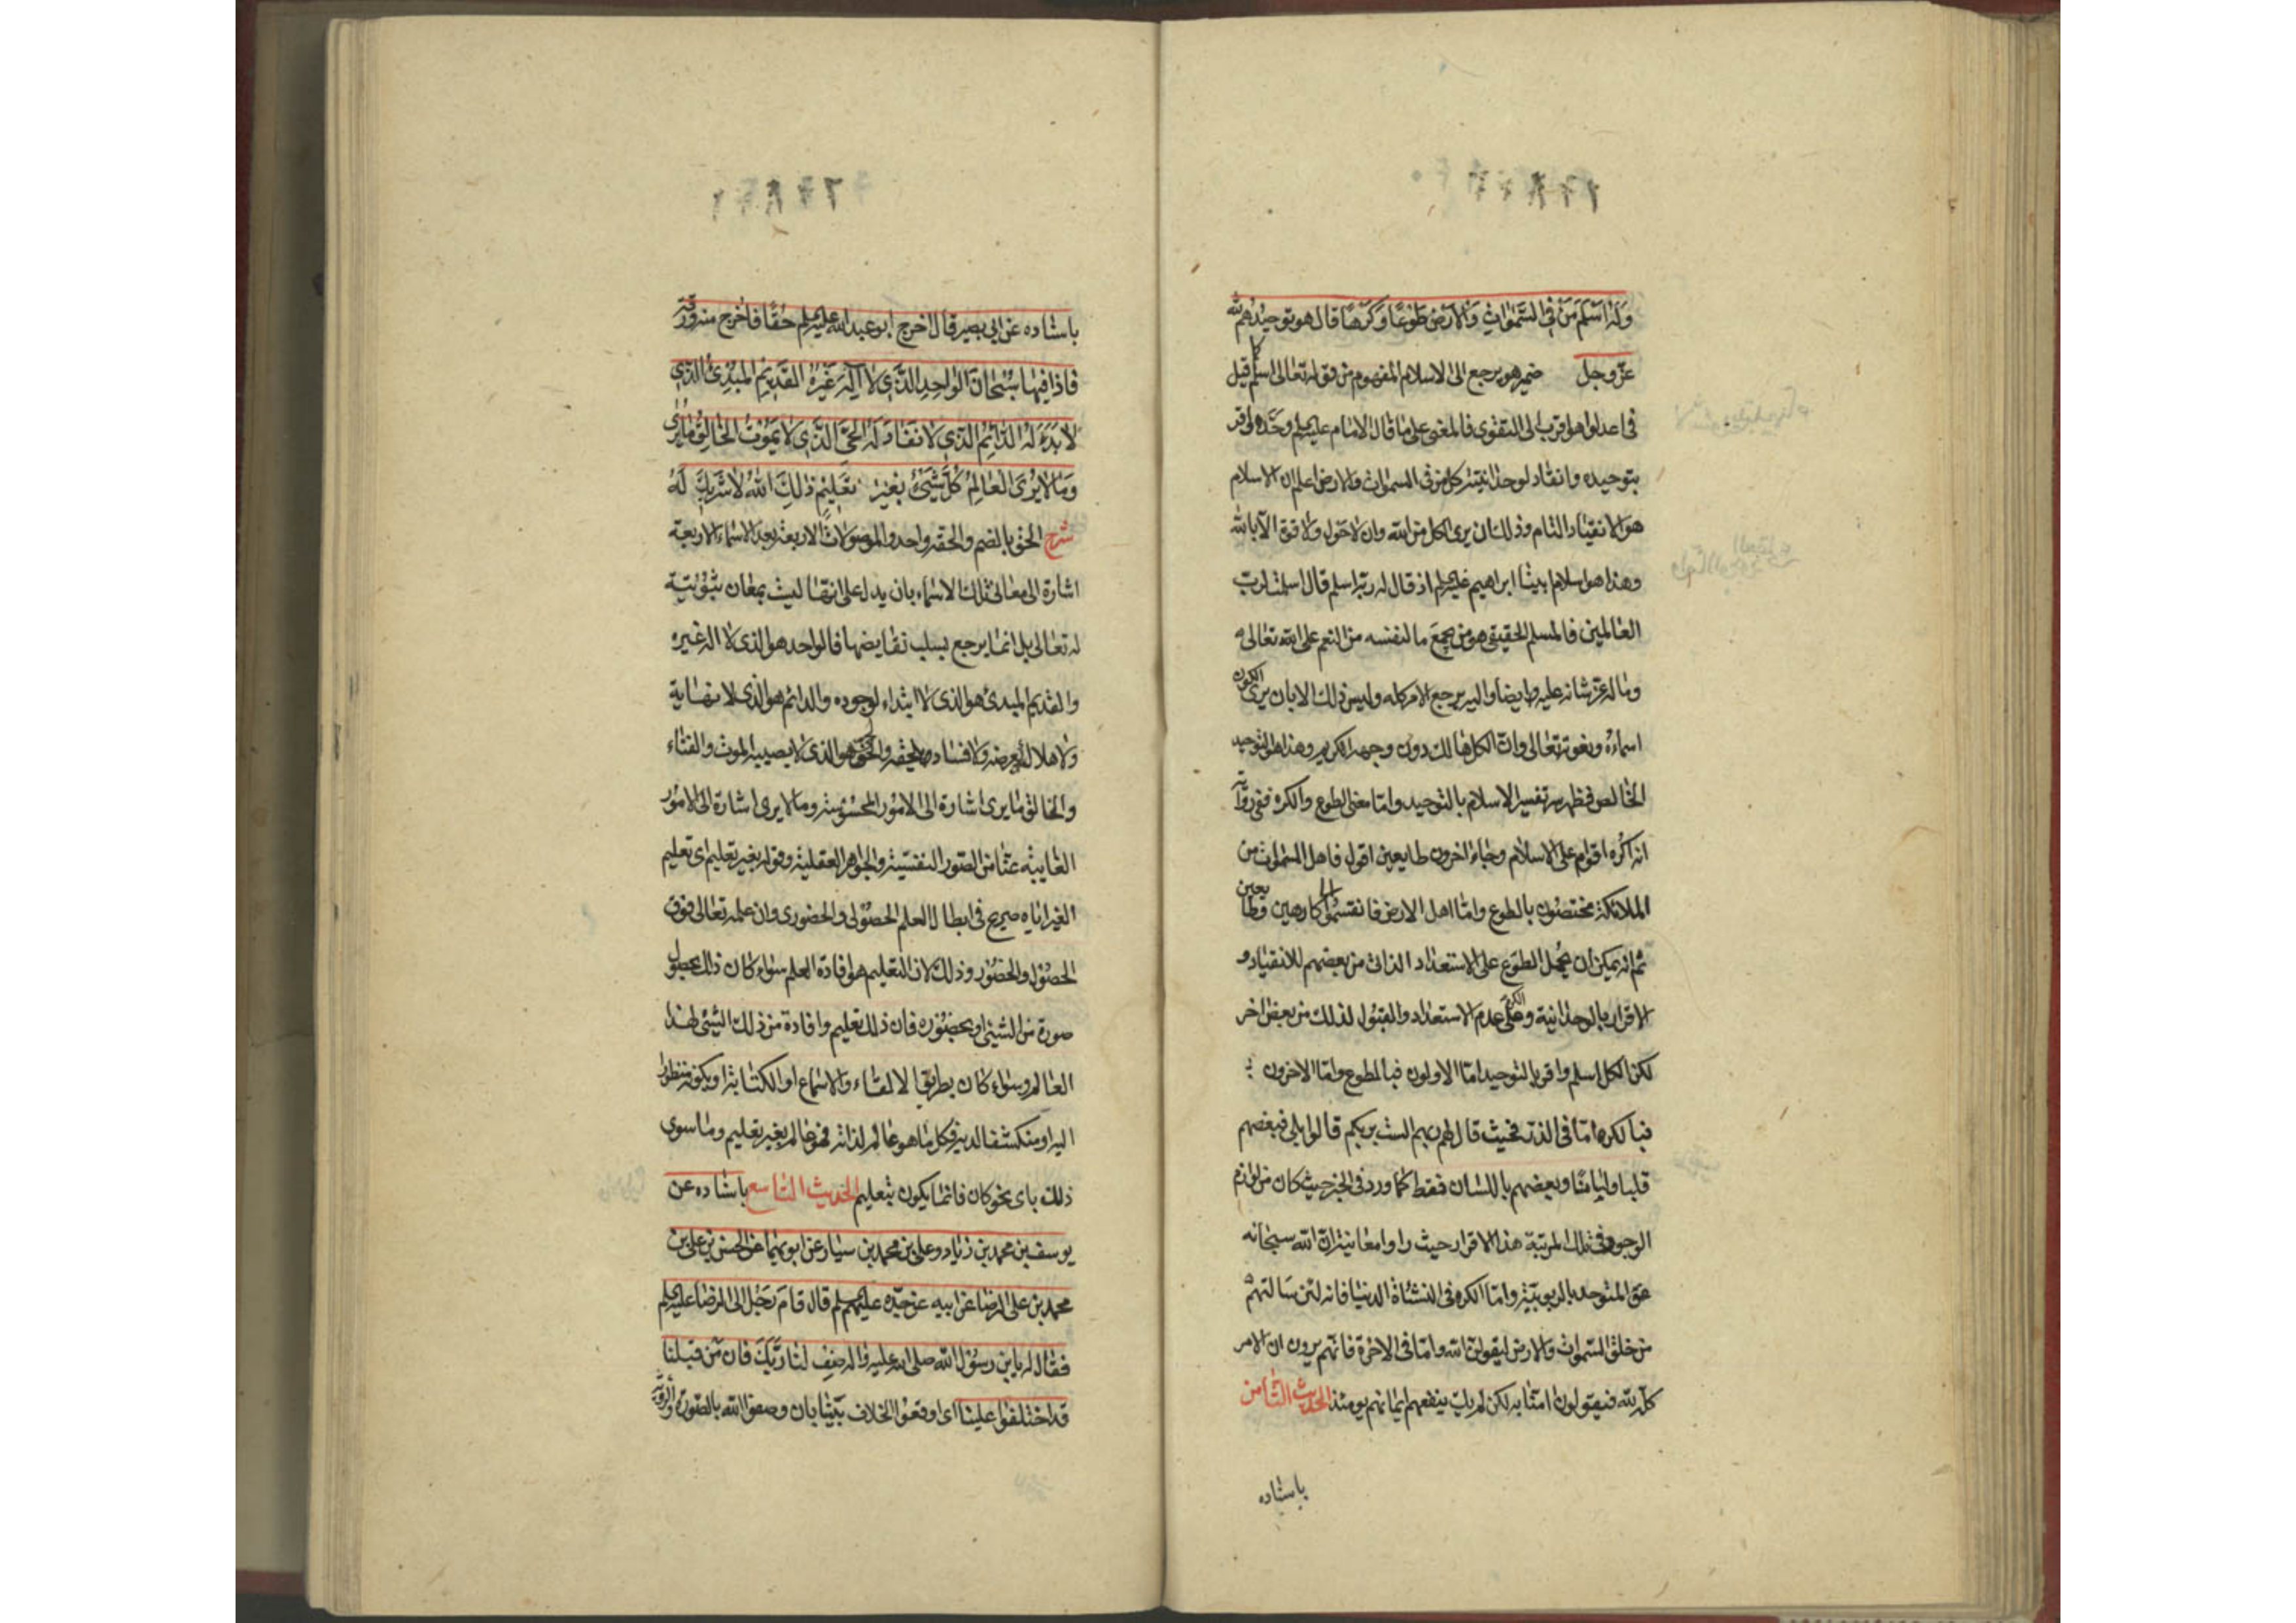 وَلَهُ اَسْلَمَ مَنْ فِی السَّمٰوٰاتِ وَالْاَرْضِ طَوْعًا وَكَرْهًا قال هو توحيدهم لله
عزّ وجل ضمير هو يرجع الى الاسلام المفهوم من قوله تعالى اسلم كما قيل
فى اعدلوا هو اقرب الى التقوى فالمعنى على ما قال الامام عليه السلم وحّده واقر
بتوحيده وانقاد لوحدانيته كل من فى السموات والارض اعلم ان الاسلام
هو الانقياد التام وذلك ان يرى الكل من الله وان لا حول ولا قوة الا بالله
وهذا هو اسلام بيتنا ابراهيم عليه السلم اذ قال له ربه اسلم قال اسلمت لرب
العالمين فالمسلم الحقيقى هو من يجمع ما لنفسه من النعم على الله تعالى
وما له عز شانه عليه وايضا واليه يرجع الامر كله وليس ذلك الا بان يرى الكون
اسماءه ونعوته تعالى وان الكل هالك دون وجهه الكريم وهذا هو التوحيد
الخالص فظهر سر تفسير الاسلام بالتوحيد واما معنى الطوع والكره ففى رواية
انه اكره اقوام على الاسلام وجاء اخرون طايعين اقول فاهل السموات من
الملائكة مختصون بالطوع واما اهل الارض فانقسموا الى كارهين وطايعين
ثم انه يمكن ان يحمل الطوع على الاستعداد الذاتى من بعضهم للانقياد و
الاقرار بالوحدانية والكره على عدم الاستعداد والقبول لذلك من بعض اخر
لكن الكل اسلم واقر بالتوحيد اما الاولون فبالطوع واما الاخرون
فبالكره اما فى الذر فحيث قال لهم ربهم الست بربكم قالوا بلى فبعضهم
قلبا وايمانا وبعضهم باللسان فقط كما ورد فى الخبر حيث كان من لوازم
الوجود فى تلك المرتبة هذا الاقرار حيث راوا معاينة ان الله سبحانه
هو المتوحد بالربوبية واما الكره فى النشاة الدنيا فانه لئن سالتهم
من خلق السموات والارض ليقولن الله واما فى الاخرة فانهم يرون ان الامر
كله لله فيقولون امنا به لكن لم يك ينفعهم ايمانهم يومئذ الحديث الثامن
باسناده
باسناده عن ابى بصير قال اخرج ابو عبد الله عليه السلم حُقًّا فاخرج منه ورقة
فاذا فيها سُبْحَانَ الْوٰاحِدِ الَّذِی لٰا اِلٰهَ غَيْرُهُ القَدِيمِ المُبْدِئِ الَّذِی
لا بَدْءَ لَهُ الدَّائِمِ الَّذِی لا نَفَادَ لَهُ الحَیِّ الَّذِی لا يَمُوتُ الخَالِقِ مَا يُرٰى
وَمَا لا يُرٰى العَالِمِ كُلَّ شَیْءٍ بِغَيْرِ تَعْلِيمٍ ذٰلِكَ اللهُ لا شَرِيكَ لَهُ
شرح الحق بالضم والحقة واحد والموصولات الاربعة بعد الاسماء الاربعة
اشارة الى معانى تلك الاسماء بان يدل على انها ليست بمعان ثبوتية
له تعالى بل انما يرجع بسلب نقايضها فالواحد هو الذى لا اله غيره
والقديم المبدئ هو الذى لا ابتداء لوجوده والدائم هو الذى لا نهاية
ولا هلاك يعرضه ولا فساد يلحقه والحى هو الذى لا يصيبه الموت والفناء
والخالق ما يرى اشارة الى الامور المحسوسة وما لا يرى اشارة الى الامور
الغايبة عنا من الصور النفسية والجواهر العقلية وقوله بغير تعليم اى تعليم
الغير اياه صريح فى ابطال العلم الحصولى والحضورى وان علمه تعالى فوق
الحصول والحضور وذلك لان التعليم هو افادة العلم سواء كان ذلك بحصول
صورة من الشیئ او بحضوره فان ذلك تعليم وافادة من ذلك الشیئ لهذا
العالم وسواء كان بطريق الالقاء والاسماع او الكتابة او بكونه منظورا
اليه او منكشفا لديه فكل ما هو عالم لذاته فهو عالم بغير تعليم وما سوى
ذلك باى نحو كان فانما يكون بتعليم الحديث التاسع باسناده عن
يوسف بن محمد بن زياد وعلى بن محمد بن سيار عن ابويهما عن الحسن بن على بن
محمد بن على الرضا عن ابيه عن جدّه عليهم السلم قال قام رجل الى الرضا عليه السلم
فقال له يابن رسول الله صلى الله عليه واله صف لنا ربك فان من قبلنا
قد اختلفوا علينا اى اوقعوا الخلاف بيننا بان وصفوا الله بالصورة والرؤية